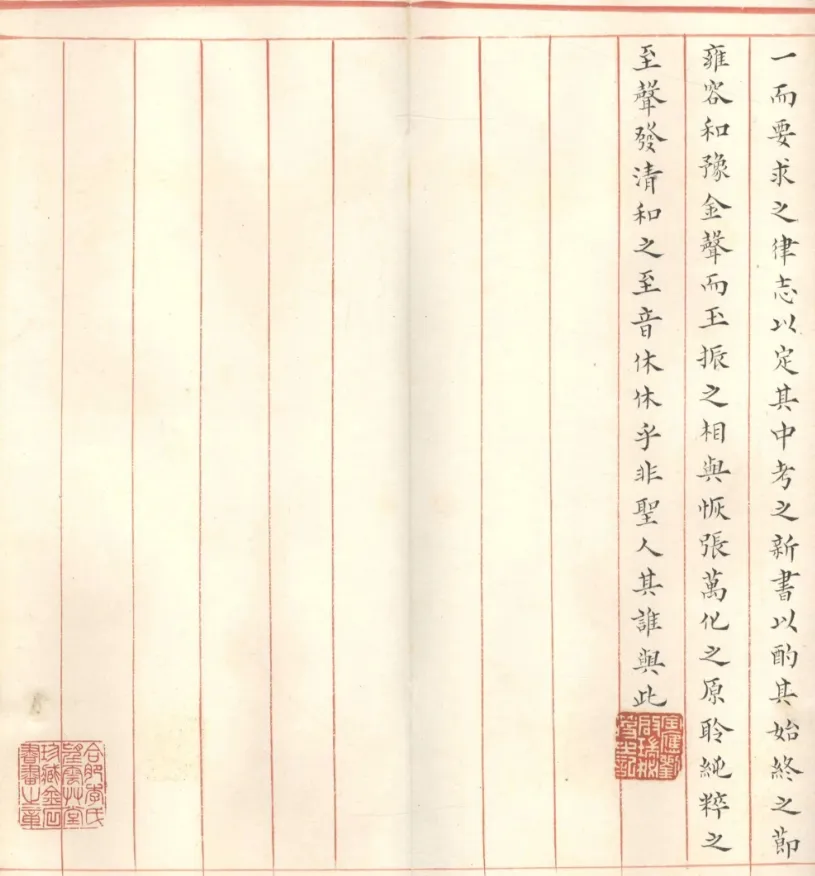 一而要求之律志以定其中考之新書以酌其始終之節
雍容和豫金聲而玉振之相與恢張萬化之原聆純粹之
至聲發清和之至音休休乎非聖人其誰與此
合肥李氏
望雲草堂
珍藏金石
書畫之章